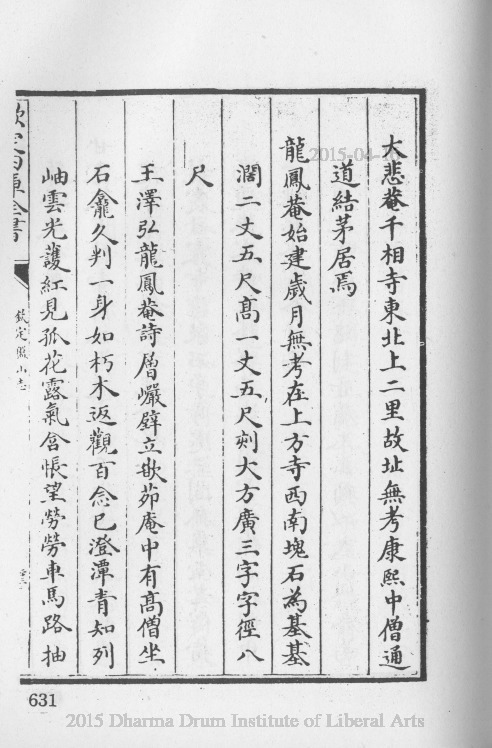 大悲菴千相寺東北上二里故址無考康熙中僧通
道結茅居焉
龍鳳菴始建歲月無考在上方寺西南塊石為基基
濶二丈五尺高一丈五尺刻大方廣三字字徑八
尺
王澤弘龍鳳菴詩層巖壁立欹茆庵中有高僧坐
石龕久判一身如朽木返觀百念已澄潭青知列
岫雲光護紅見孤花露氣含悵望勞勞車馬路抽
欽定四庫全書
欽定盤山志
631
2015 Dharma Drum Institute of Liberal Arts